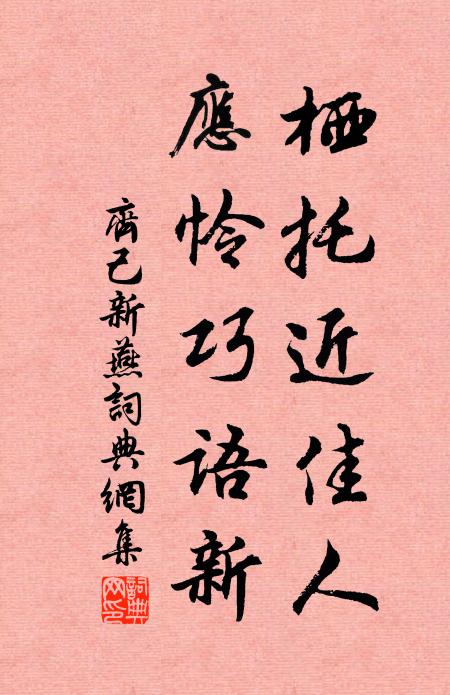 栖托近佳人
應怜巧語新
齊己新燕詞典網集
詞典网印